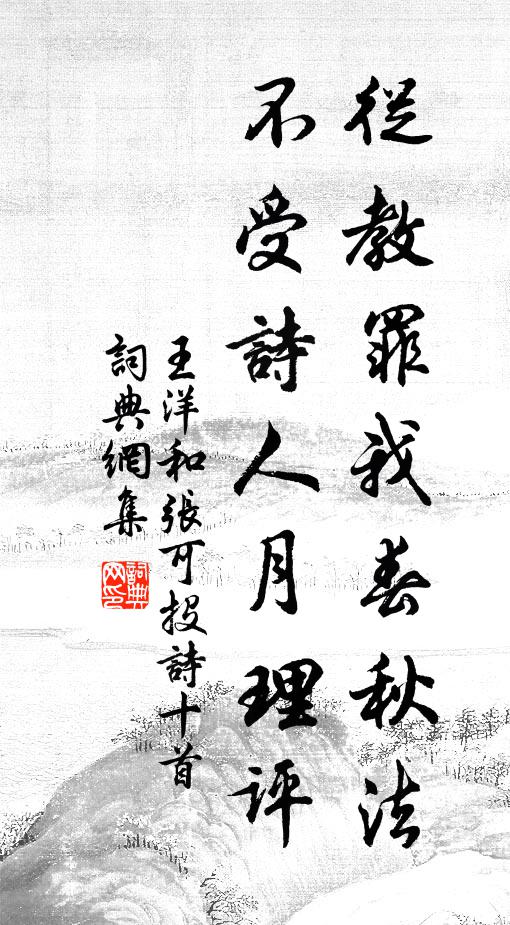 從教罪我春秋法
不受詩人月理評
王洋和張可投詩十首
詞典網集
詞典網印